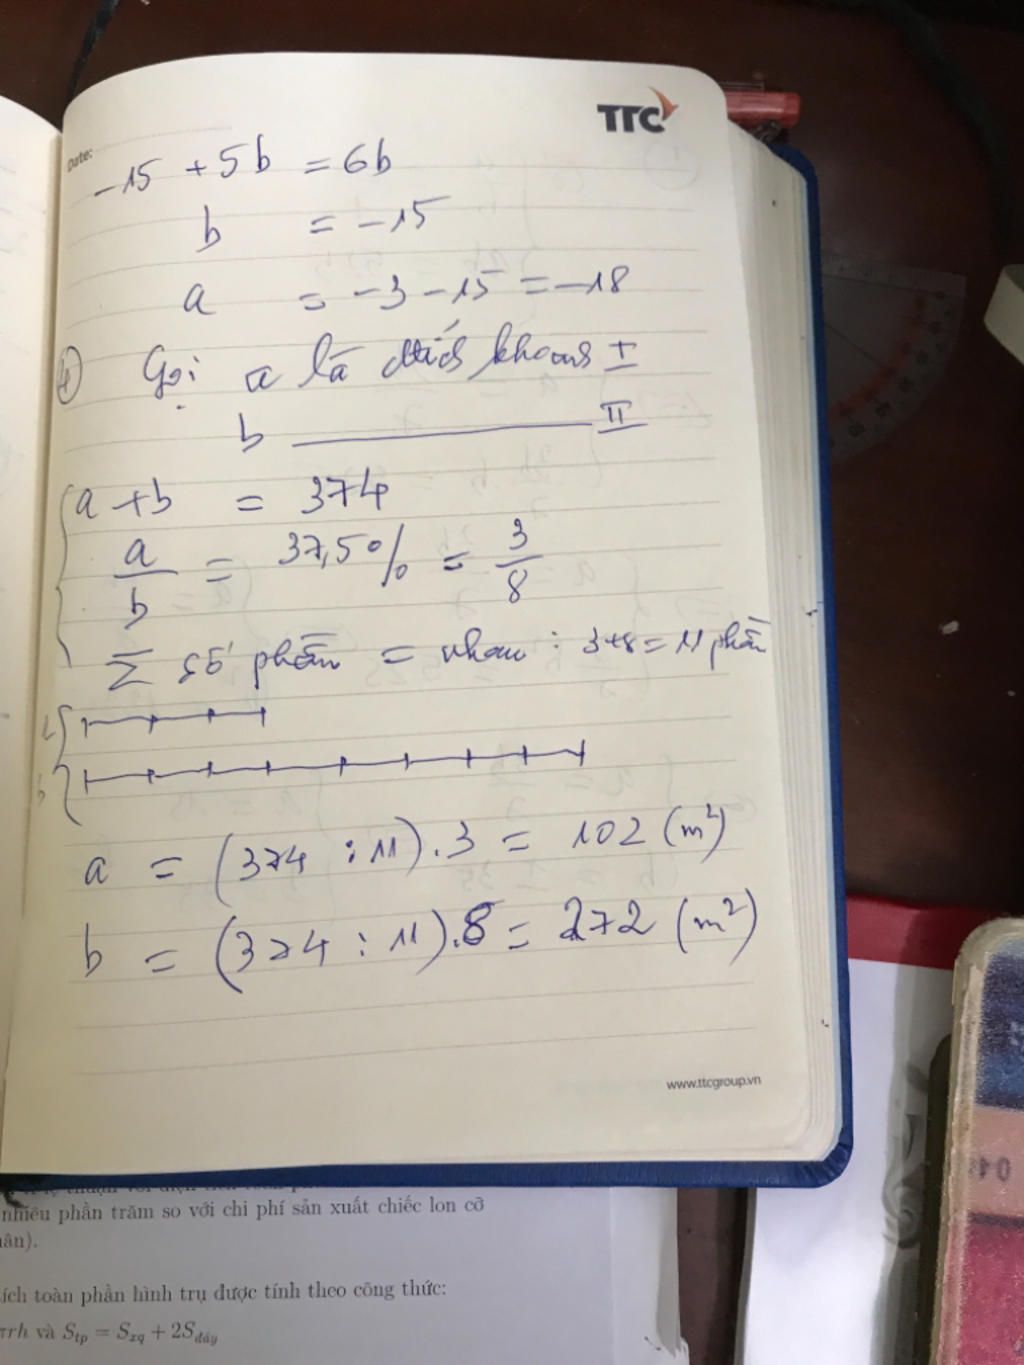 TTC
Date:
-15 + 5b = 6b
b = -15
a = -3 - 15 = -18
4 Gọi a là khoang I
b ——— II
a + b = 374
a/b = 37,5% = 3/8
Σ số phần = nhau : 3+8 = 11 phần
b
a = (374 : 11) . 3 = 102 (m²)
b = (374 : 11) . 8 = 272 (m²)
www.ttcgroup.vn
nhiêu phần trăm so với chi phí sản xuất chiếc lon cỡ
ân).
ích toàn phần hình trụ được tính theo công thức:
πrh và Stp = Sxq + 2Sđáy